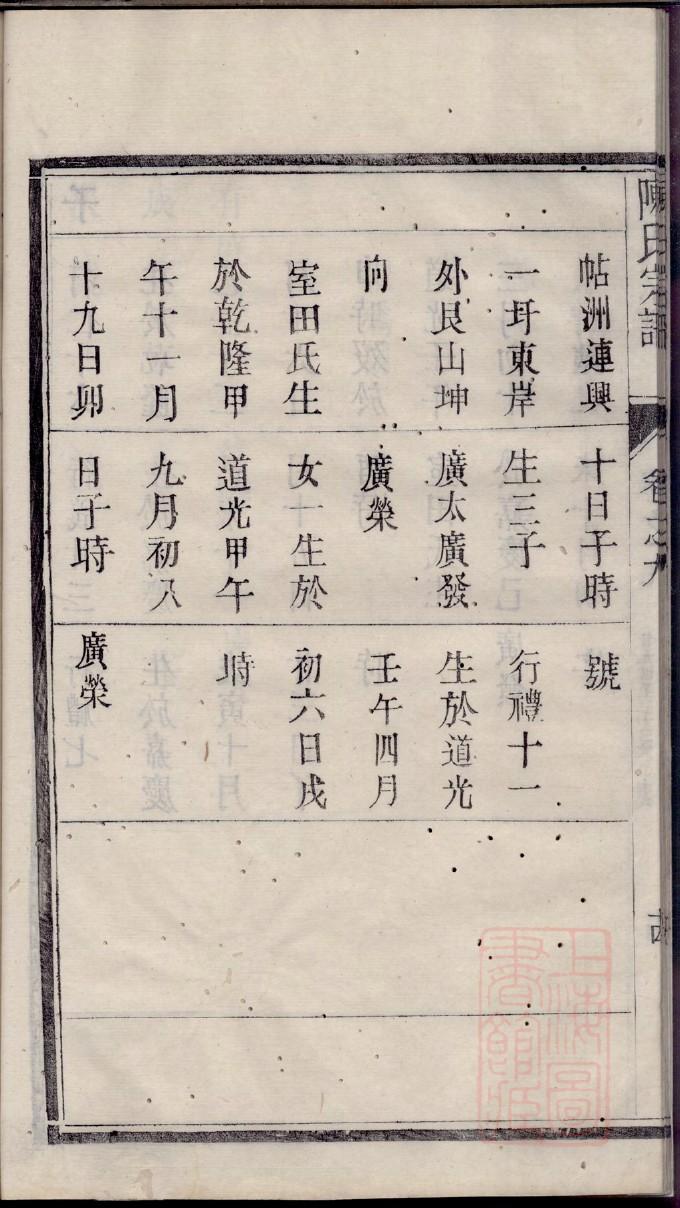 陳氏宗譜
卷之九
帖洲連興
一圩東岸
外艮山坤
向
室田氏生
於乾隆甲
午十一月
十九日卯
十日子時
生三子
廣太廣發
廣榮
女一生於
道光甲午
九月初八
日子時
號
行禮十一
生於道光
壬午四月
初六日戌
時
廣榮